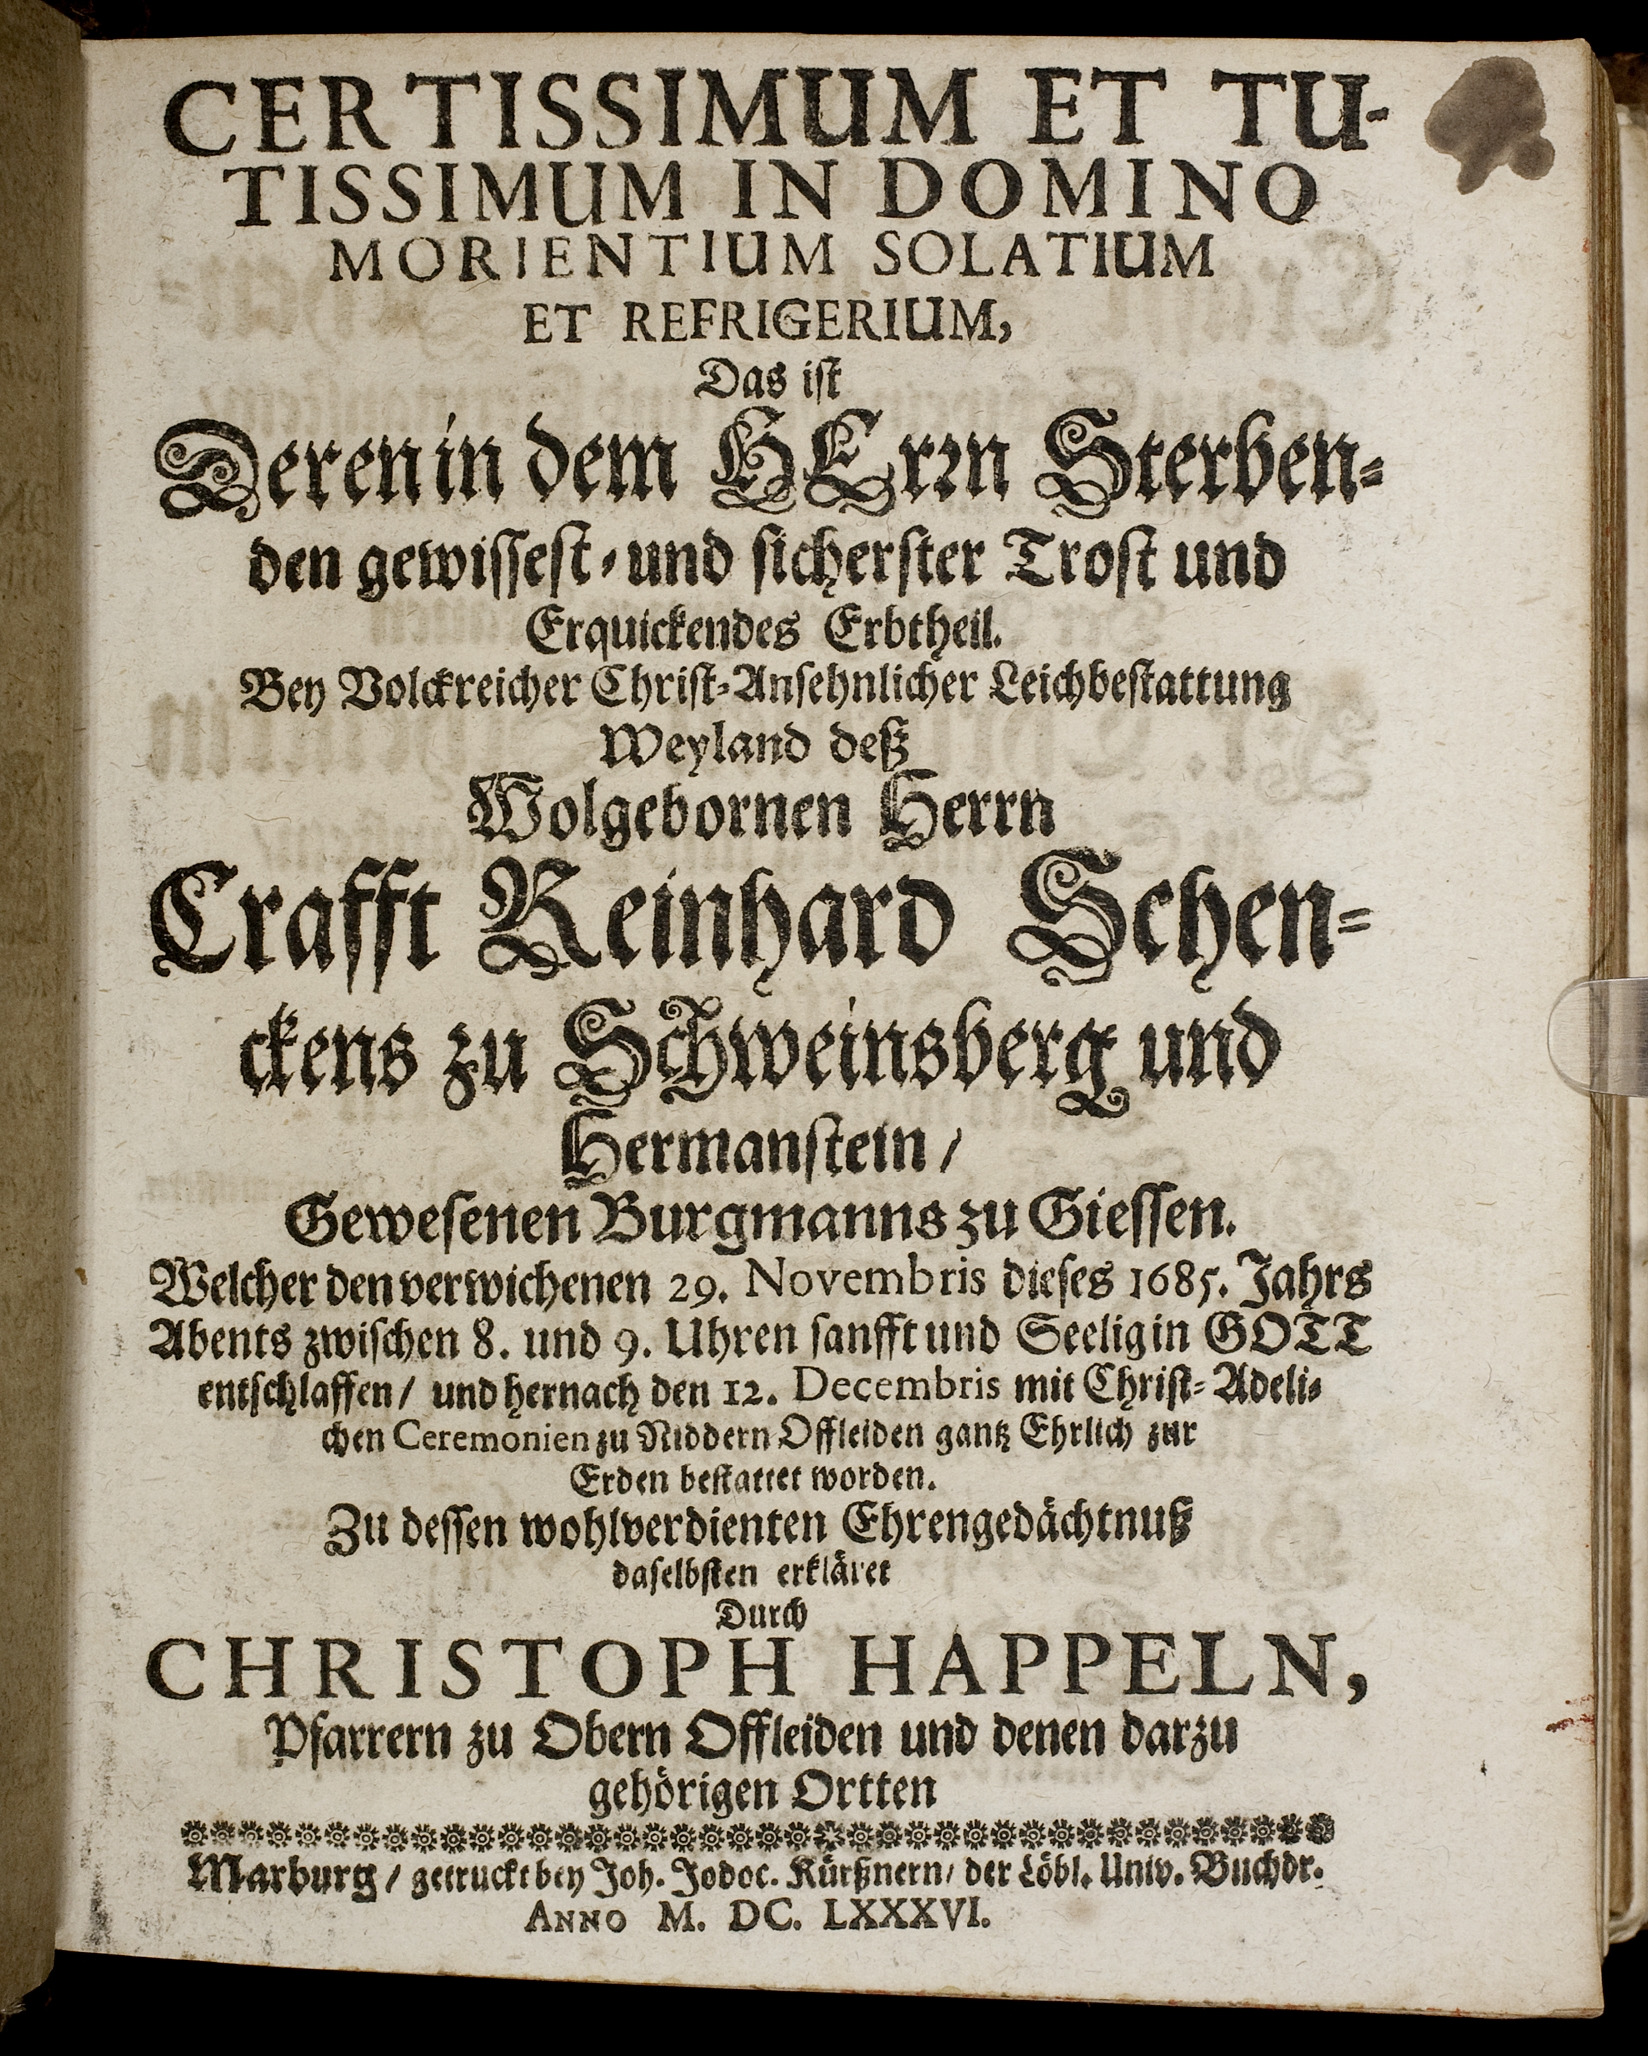 CERTISSIMUM ET TU-
TISSIMUM IN DOMINO
MORIENTIUM SOLATIUM
ET REFRIGERIUM,
Das ist
Deren in dem HErrn Sterben-
den gewissest- und sicherster Trost und
Erquickendes Erbtheil.
Bey Volckreicher Christ-Ansehnlicher Leichbestattung
Weyland deß
Wolgebornen Herrn
Crafft Reinhard Schen-
ckens zu Schweinsberg und
Hermanstein/
Gewesenen Burgmanns zu Giessen.
Welcher den verwichenen 29. Novembris dieses 1685. Jahrs
Abents zwischen 8. und 9. Uhren sanfft und Seelig in GOTT
entschlaffen/ und hernach den 12. Decembris mit Christ-Adeli-
chen Ceremonien zu Niddern Offleiden gantz Ehrlich zur
Erden bestattet worden.
Zu dessen wohlverdienten Ehrengedächtnuß
daselbsten erkläret
Durch
CHRISTOPH HAPPELN,
Pfarrern zu Obern Offleiden und denen darzu
gehörigen Ortten
Marburg/ getruckt bey Joh. Jodoc. Kürßnern/ der Löbl. Univ. Buchdr.
ANNO M. DC. LXXXVI.